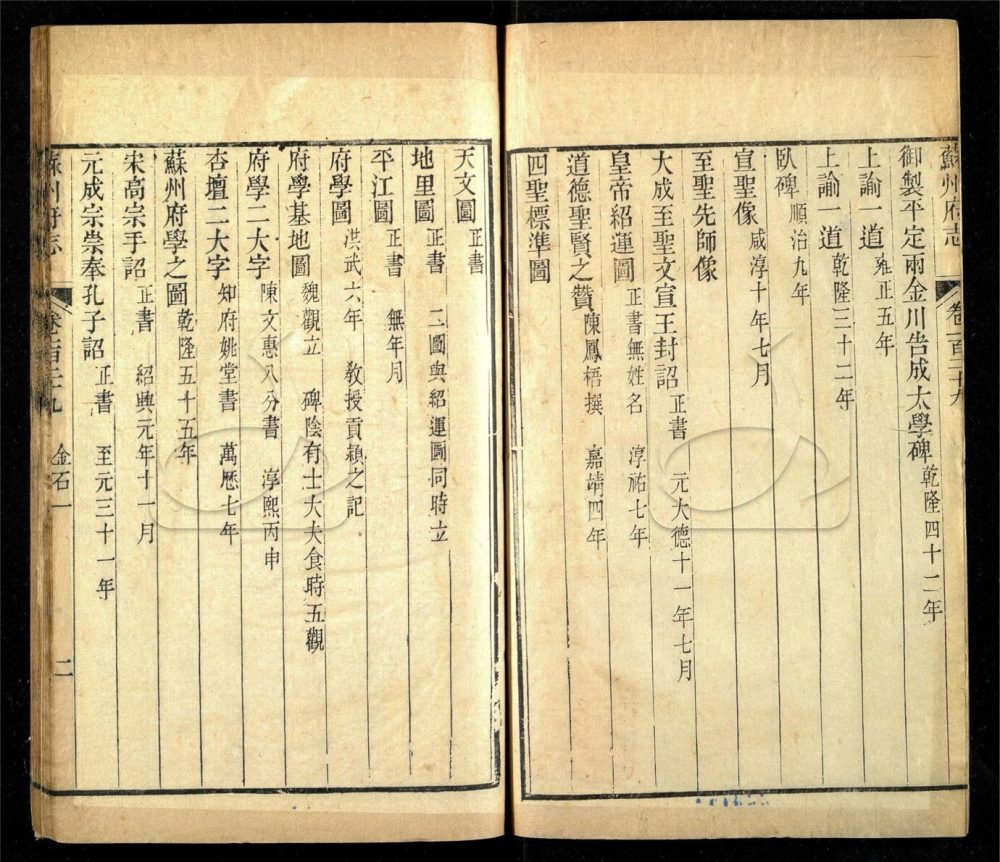 蘇州府志 卷一百三十九
御製平定兩金川告成太學碑 乾隆四十二年
上諭一道 雍正五年
上諭一道 乾隆三十二年
臥碑 順治九年
宣聖像 咸淳十年七月
至聖先師像
大成至聖文宣王封詔 正書 元大德十一年七月
皇帝紹運圖 正書無姓名 淳祐七年
道德聖賢之贊 陳鳳梧撰 嘉靖四年
四聖標準圖
天文圖 正書
地里圖 正書 二圖與紹運圖同時立
平江圖 正書 無年月
府學圖 洪武六年 教授貢潁之記
府學基地圖 魏觀立 碑陰有士大夫食時五觀
府學二大字 陳文惠八分書 淳熙丙申
杏壇二大字 知府姚堂書 萬歷七年
蘇州府學之圖 乾隆五十五年
宋高宗手詔 正書 紹興元年十一月
元成宗崇奉孔子詔 正書 至元三十一年
蘇州府志 卷一百三十九 金石一 二